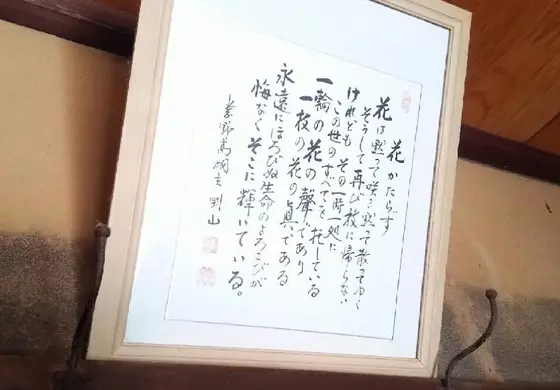 花 かたらず
花は黙って咲き黙って散ってゆく
そうして再び枝に帰らない
けれども その一時一処に
この世のすべてを托している
一輪の花の聲であり
一枝の花の眞である
永遠にほろびぬ生命のよろこびが
悔なくそこに輝いている。